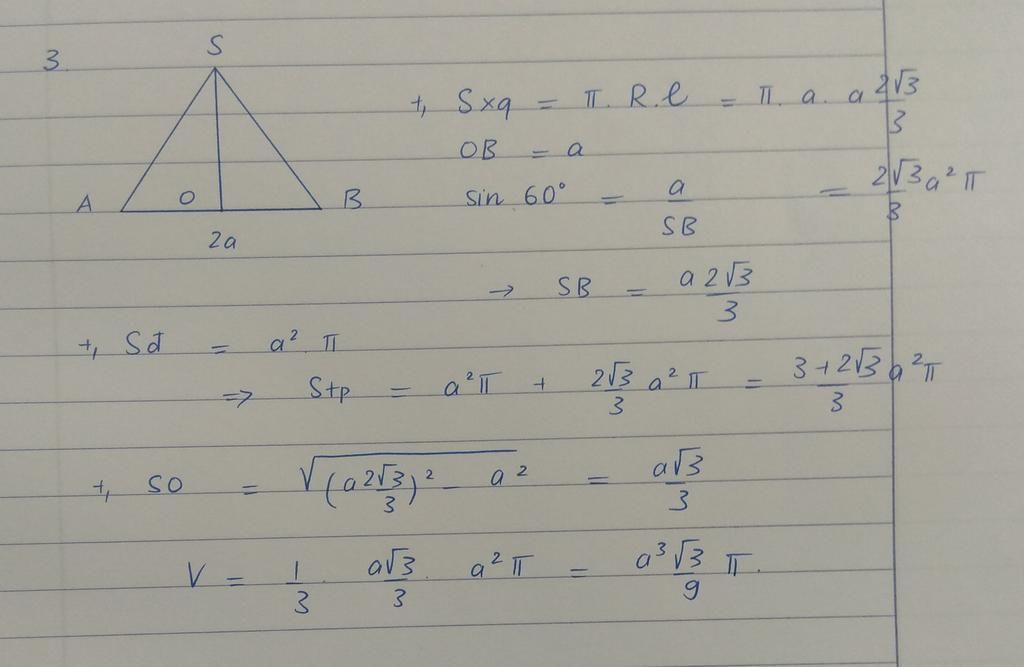 3.
S
A O B
2a
+, Sxq = π. R. l = π. a. a 2√3/3
OB = a
sin 60° = a/SB = 2√3/3 a² π
→ SB = a 2√3/3
+, Sđ = a². π
⇒ Stp = a²π + 2√3/3 a² π = 3+2√3/3 a²π
+, SO = √(a 2√3/3)² - a² = a√3/3
V = 1/3 . a√3/3 . a² π = a³√3/9 π.